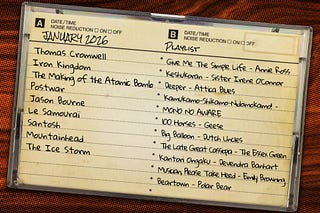 A
DATE/TIME
NOISE REDUCTION ☐ ON ☐ OFF
JANUARY 2026
Thomas Cromwell
Iron Kingdom
The Making of the Atomic Bomb
Postwar
Jason Bourne
Le Samourai
Santosh
Mountainhead
The Ice Storm
B
DATE/TIME
NOISE REDUCTION ☐ ON ☐ OFF
PLAYLIST
Give Me The Simple Life - Annie Ross
- Sister Irene O'Connor
Deeper - Attica Blues
MONO NO AWARE
100 Horses - Geese
Big Balloon - Dutch Uncles
The Late Great Cassiopia - The Essex Green
Kantori Ongaku - Devendra Banhart
Musician, Please Take Heed - Emily Browning
Beartown - Polar Bear